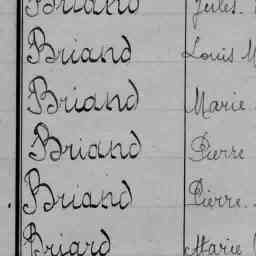 Briand Jules
Briand Louis M
Briand Marie
Briand Pierre
Briand Pierre
Briard Marie